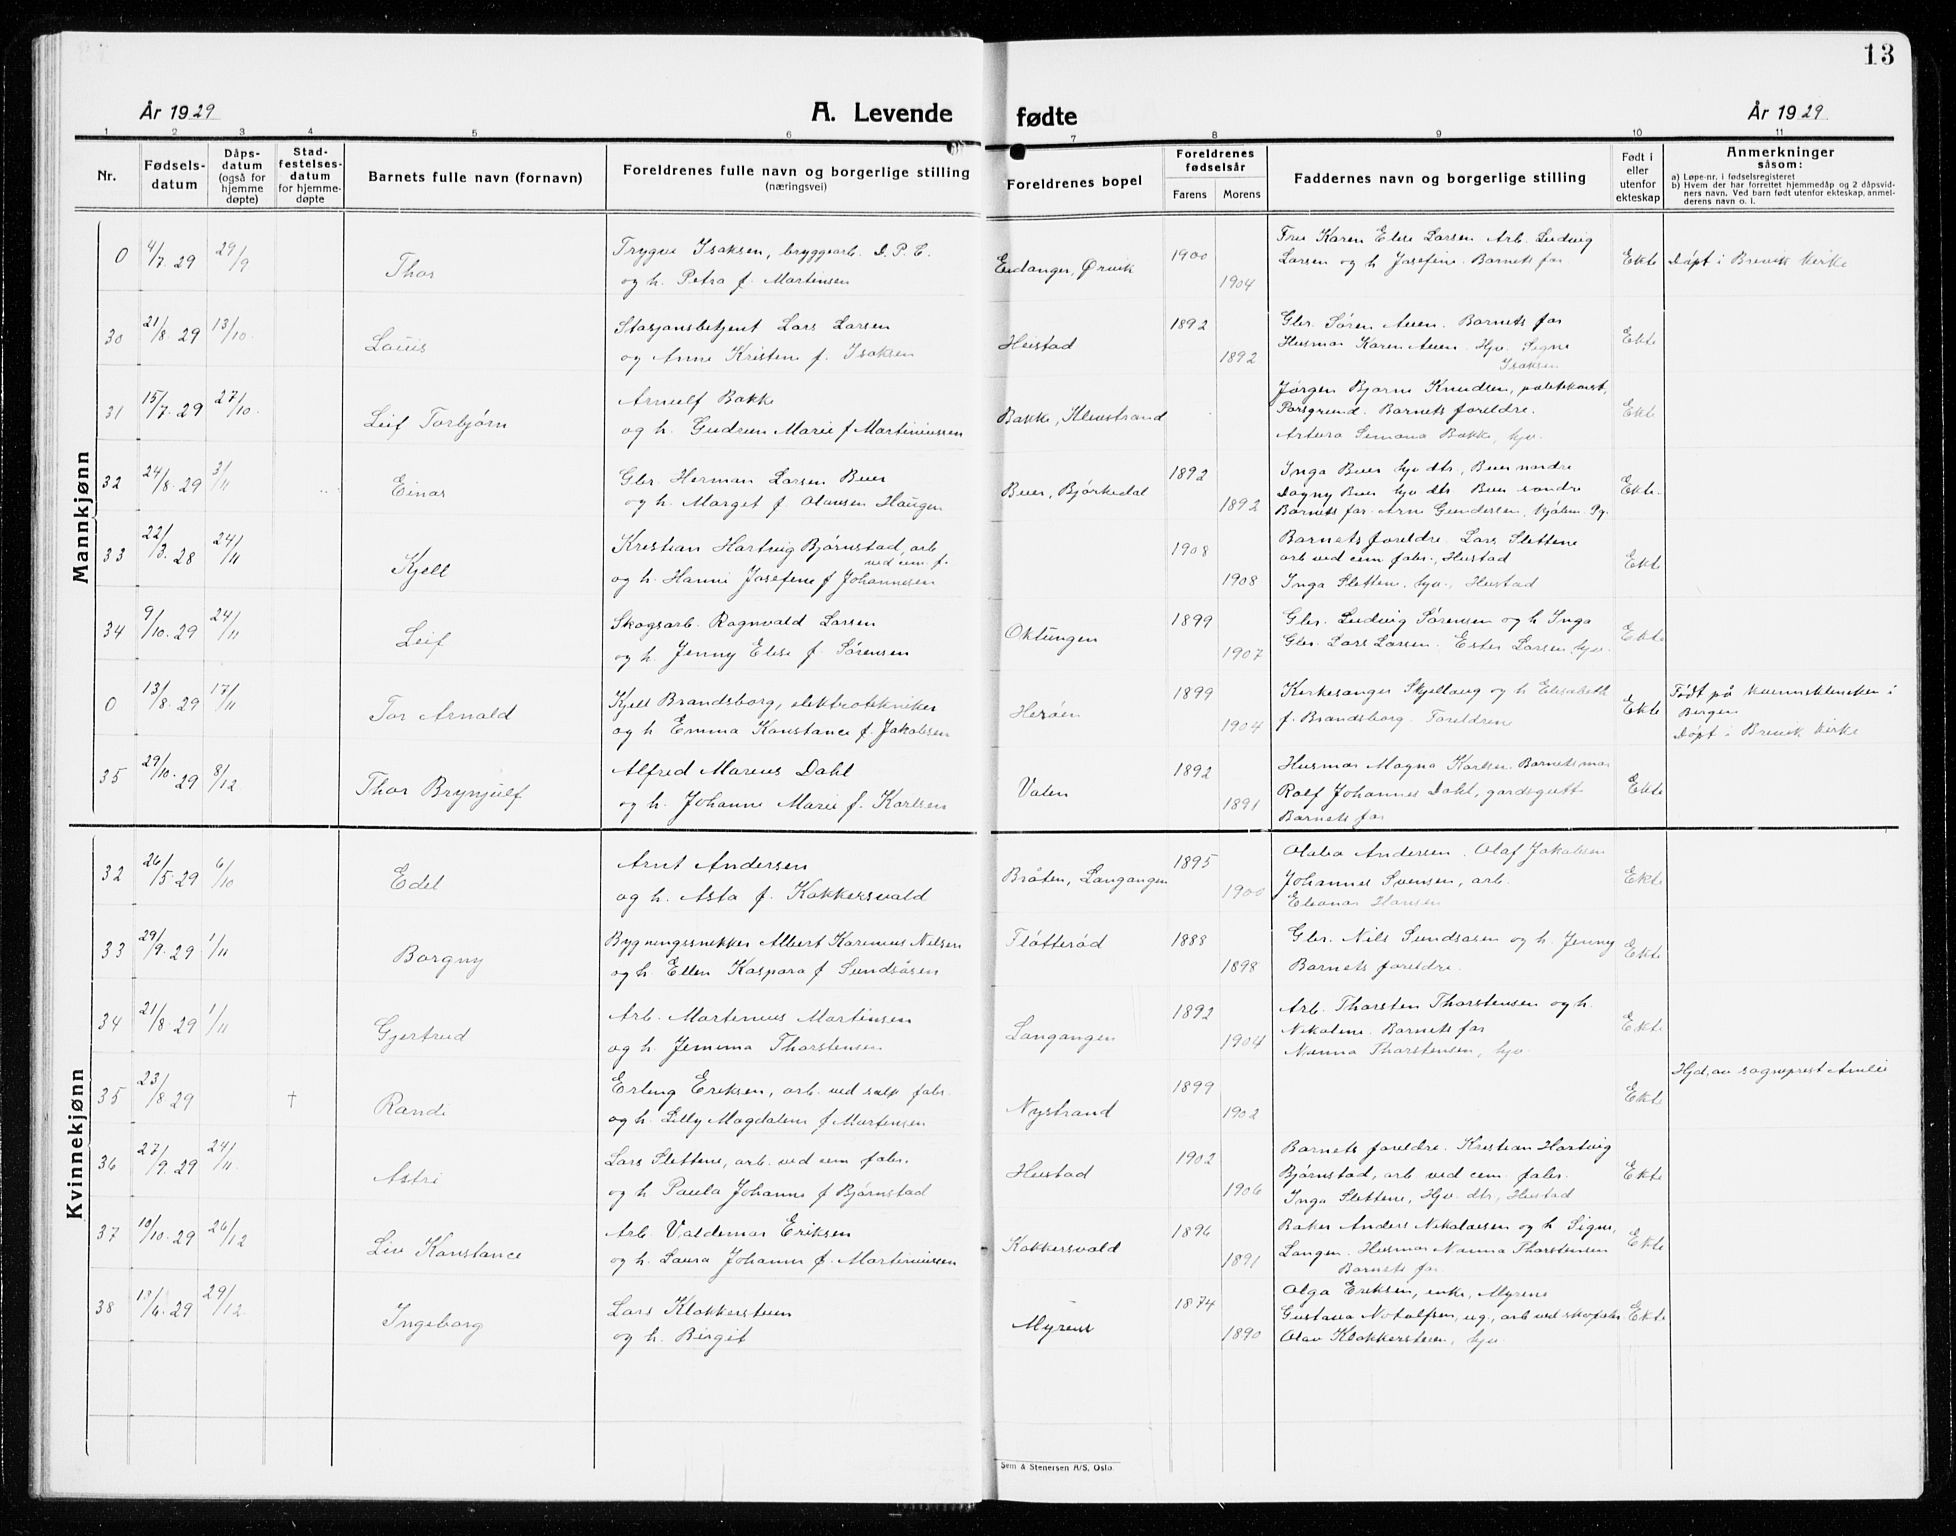 13
År 1929
A. Levende
fødte
År 1929
1 2 3 4 5 6 7 8 9 10 11
Nr.
Fødsels-
datum
Dåps-
datum
(også for
hjemme
døpte)
Stad-
festelses-
datum
for hjemme-
døpte
Barnets fulle navn (fornavn)
Foreldrenes fulle navn og borgerlige stilling
(næringsvei)
Foreldrenes bopel
Foreldrenes
fødselsår
Farens Morens
Faddernes navn og borgerlige stilling
Født i
eller
utenfor
ekteskap
Anmerkninger
såsom:
a) Løpe-nr. i fødselsregisteret
b) Hvem der har forrettet hjemmedåp og 2 dåpsvid-
ners navn. Ved barn født utenfor ekteskap, anmel-
derens navn o. l.
Mannkjønn
0 4/7 29 29/9 Thor
Trygve Isaksen, bryggearb. D.P.C.
og h. Petra f. Martinsen
Eidanger, Ørvik 1900 1904
Fru Karen Elise Larsen Arb. Ludvig
Larsen og h Josefine. Barnets far
Ekte Døpt i Brevik kirke
30 21/8 29 13/10 Louis
Stasjonsbetjent Lars Larsen
og Anne Kristine f. Isaksen
Heistad 1892 1892
Gbr. Søren Auen. Barnets far
Husmor Karen Auen. Hjv. Signe
Isaksen
Ekte
31 15/7 29 27/10 Leif Torbjørn
Arnulf Bakke
og h. Gudrun Marie f Martiniussen
Bakke, Klevstrand
Jørgen Bjarne Knudsen, politikonst,
Porsgrund. Barnets foreldre.
Artura Simona Bakke, hjv.
Ekte
32 24/8 29 3/11 Einar
Gbr. Herman Larsen Buer
og h. Marget f. Olausen Haugen
Buer, Bjørkedal 1892 1892
Inga Buer hjv dtr., Buer nordre
Dagny Buer hjv dtr. Buer søndre
Barnets far. Arne Gundersen, Kjølnes Pg.
Ekte
33 22/3 28 24/11 Kjell
Kristian Hartvig Bjørnstad, arb
ved cem. f.
og h. Hanni Josefine f Johannesen
1908 1908
Barnets foreldre. Lars Slettene
arb ved cem fabr., Heistad
Inga Slettene, hjv., Heistad
Ekte
34 9/10 29 24/11 Leif
Skogsarb. Ragnvald Larsen
og h. Jenny Elise f. Sørensen
Oklungen 1899 1907
Gbr. Ludvig Sørensen og h Inga
Gbr. Lars Larsen. Ester Larsen, hjv.
Ekte
0 13/8 29 17/11 Tor Arnold
Kjell Brandsborg, elektrotekniker
og h. Emma Konstance f. Jakobsen
Herøen 1899 1904
Kirkesanger Skjellaug og h Elisabeth
f. Brandsborg. Foreldrene
Ekte Født på kvinneklinikken i
Bergen
Døpt i Brevik kirke
35 29/10 29 8/12 Thor Brynjulf
Alfred Marius Dahl
og h. Johanne Marie f. Karlsen
Valen 1892 1891
Husmor Magna Karlsen. Barnets mor
Rolf Johannes Dahl, gardsgutt
Barnets far
Ekte
Kvinnekjønn
32 26/5 29 6/10 Edel
Arnt Andersen
og h. Asta f. Kokkersvold
Bråten, Langangen 1895 1900
Olava Andersen. Olaf Jakobsen
Johannes Svensen, arb.
Eleonor Hansen
Ekte
33 29/9 29 1/11 Borgny
Bygningssnekker Albert Karenius Nilsen
og h Ellen Kaspara f Sundsåsen
Flåtterød 1888 1898
Gbr. Nils Sundsåsen og h. Jenny
Barnets foreldre.
Ekte
34 21/8 29 1/11 Gjertrud
Arb. Martinius Martinsen
og h. Jemima Thorstensen
Langangen 1892 1904
Arb. Thorsten Thorstensen og h.
Nikoline. Barnets far
Nanna Thorstensen, hjv.
Ekte
35 23/8 29 † Randi
Erling Eriksen, arb. ved salp. fabr.
og h. Lilly Magdalene f Martinsen
Nystrand 1899 1902
Ekte Hjd. av sogneprest Amlie
36 27/9 29 24/11 Astri
Lars Slettene, arb. ved cem fabr.
og h. Paula Johanne f Bjørnstad
Heistad 1902 1906
Barnets foreldre. Kristian Hartvig
Bjørnstad, arb ved cem. fabr.
Inga Slettene, Hjv. dtr, Heistad
Ekte
37 10/10 29 26/12 Liv Konstance
Arb. Valdemar Eriksen
og h. Laura Johanne f. Martiniussen
Kokkersvold 1896 1891
Baker Anders Nikolaisen og h Signe,
Langen. Husmor Nanna Thorstensen
Barnets far
Ekte
38 18/6 29 29/12 Ingeborg
Lars Klokkersteien
og h. Birgit
Myrene 1874 1890
Olga Eriksen, enke, Myrene
Gustava Notolfsen, ug., arb ved skofabr
Olav Klokkersteien, hjv.
Ekte
Sem & Stenersen A/S, Oslo.